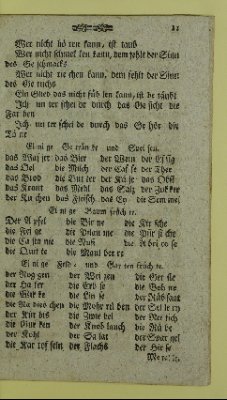 21
Wer nicht hö ren kann, ist taub
Wer nicht schmek ken kann, dem fehlt der Sinn
des Ge schmacks
Wer nicht rie chen kann, dem fehlt der Sinn
des Ge ruchs
Ein Glied das nicht füh len kann, ist be täubt
Ich un ter schei de durch das Ge sicht die
Far ben
Ich un ter schei de durch das Ge hör die
Tö ne
Ei ni ge Ge trän ke und Spei sen.
das Was ser das Bier der Wein der Es sig
das Oel die Milch der Caf fe der Thee
das Brod die But ter der Kä se das Obst
das Kraut das Mehl das Salz der Zuk ker
der Ku chen das Fleisch das Ey die Sem mel
Ei ni ge Baum früch te.
Der A pfel die Bir ne die Kir sche
die Fei ge die Pflau me die Pfir si che
die Ca sta nie die Nuß die A bri co se
die Quit te die Maul bee re
Ei ni ge Feld- und Gar ten früch te.
der Rog gen der Wei zen die Ger ste
der Ha fer die Erb se die Boh ne
die Wik ke die Lin se der Rüb saat
die Ra dies chen die Moh rü ben der Sel le ry
der Kür bis die Zwie bel der Mer rich
die Gur ken der Knob lauch die Rü be
der Kohl der Sa lat der Spar gel
die Kar tof feln der Flachs der Hir se